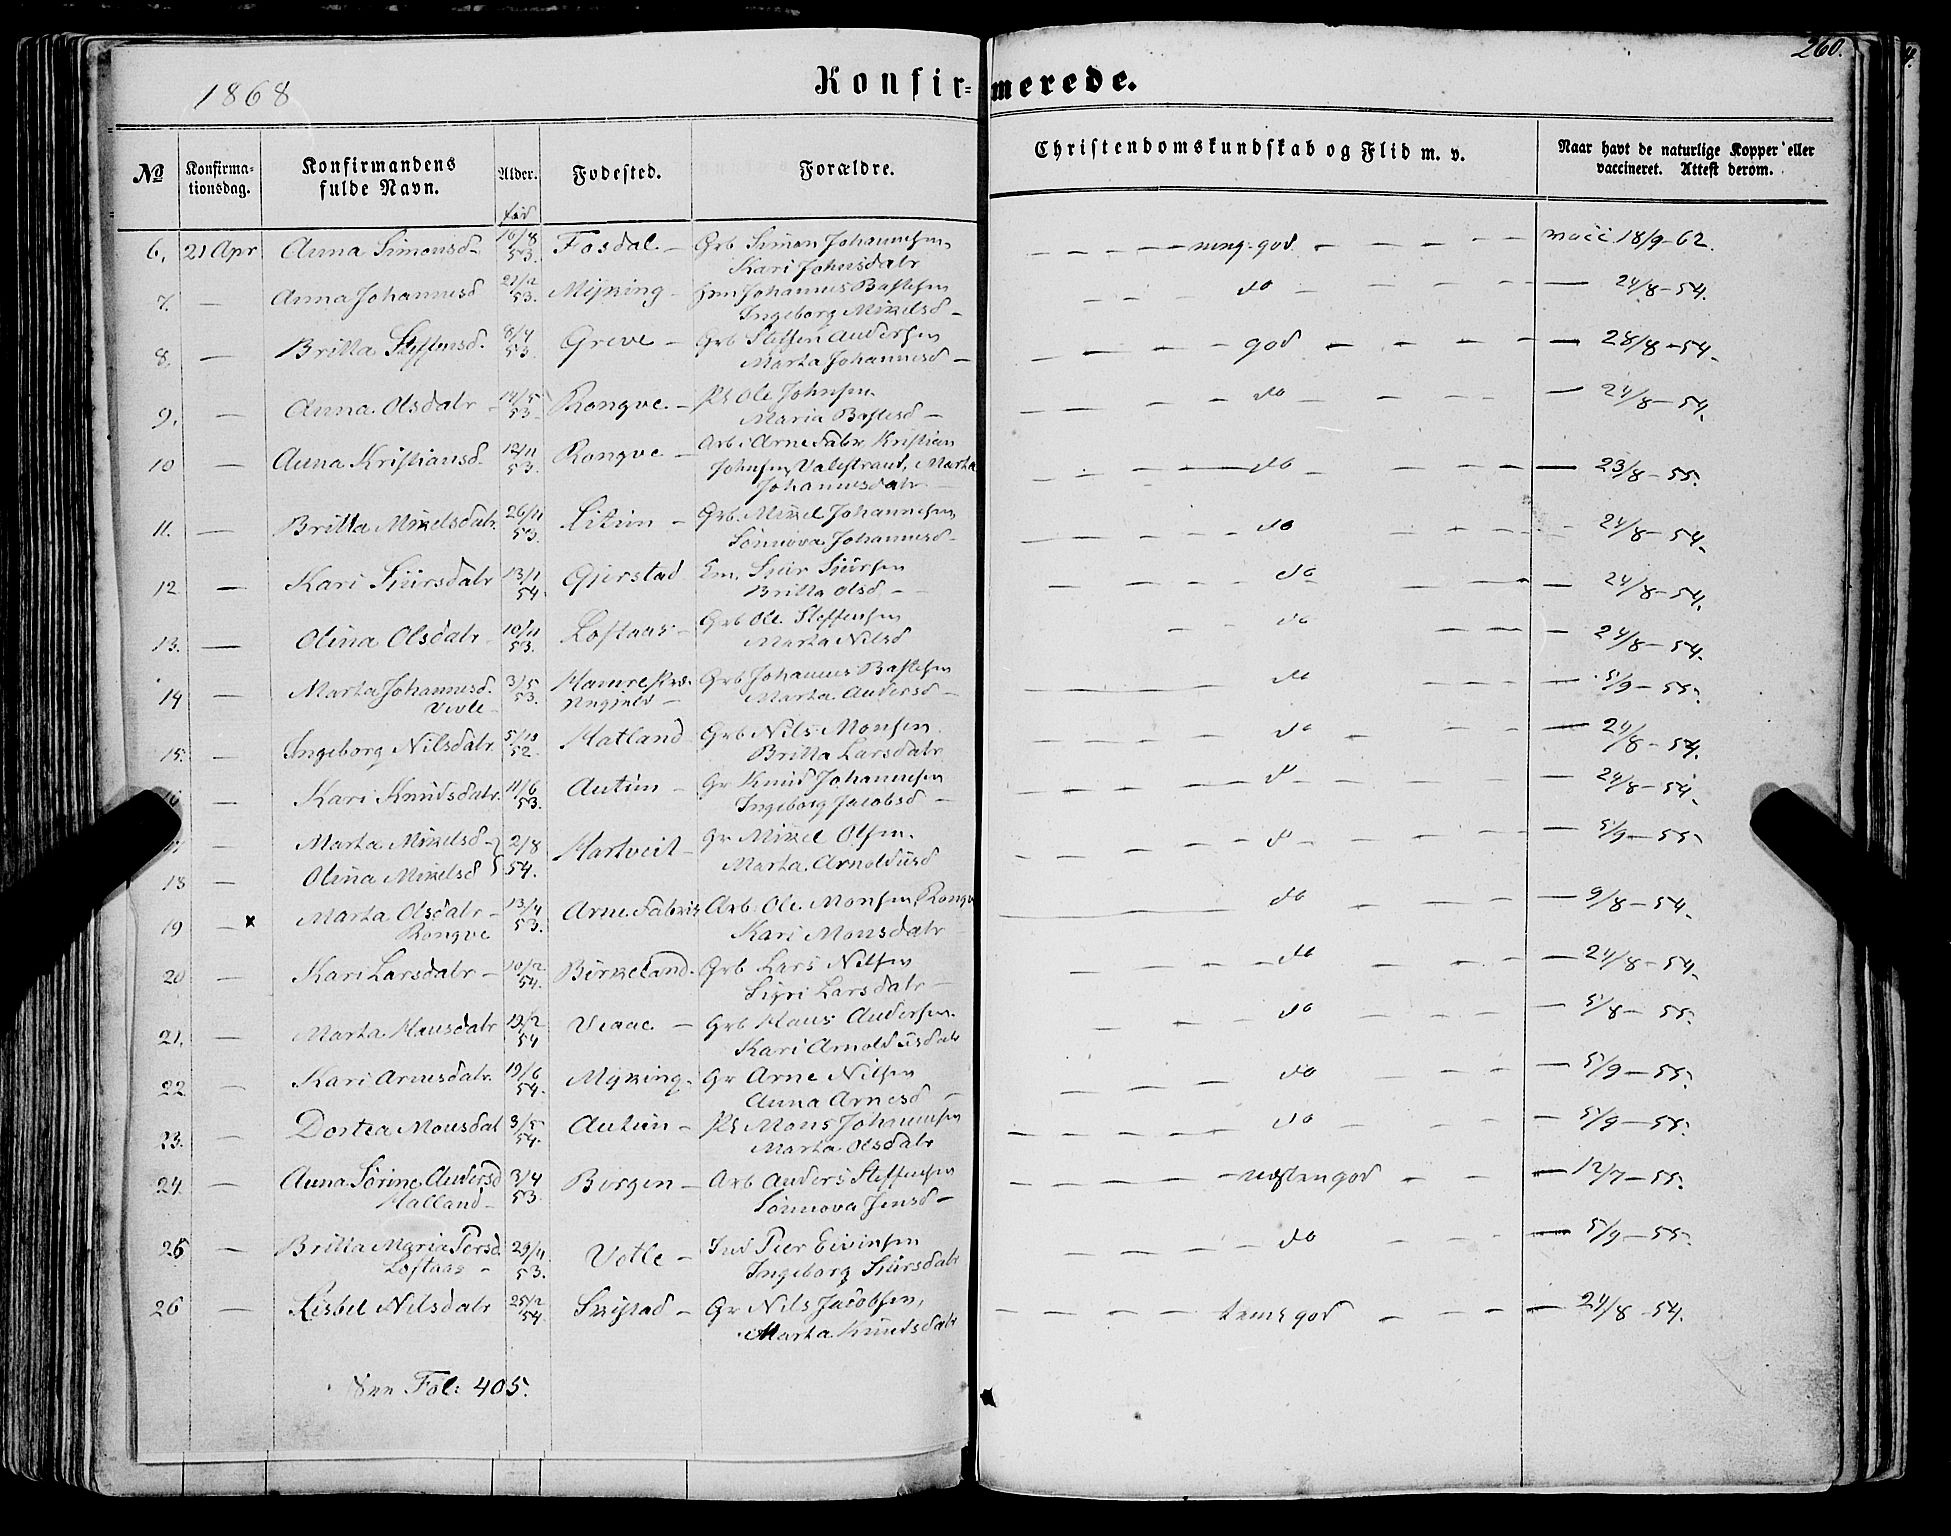 260.
1868
Konfir-merede.
No
Konfirma-tionsdag.
Konfirmandens fulde Navn.
Alder.
Fødested.
Forældre.
Christendomskundskab og Flid m. v.
Naar havt de naturlige Kopper eller vaccineret. Attest derom.
fød
6. 21 Apr Anna Simonsd 16/8 53. Fosdal Grb Simon Johannesen god vacc. 18/9-62.
Kari Johnsdatr
7. Anna Johannesd 21/2 53. Myking Johannes Bastesen do 24/8-54.
Ingeborg Mikelsd
8. Britta Steffensd. 8/4 53. Greve Grb Steffen Andersen god 28/8-54.
Marta Johannesd
9. Anna Olsdatr 53 Rongve Pl Ole Johnsen do 24/8-54.
Maria Bastesd
10 Anna Kristiansd. 12/11 53. Rongve Arb. i Arne Fabr. Kristian
Johnsen Valestrand, Marta do 23/8-55.
Johannesdatr
11. Britta Mikelsdatr 26/11 53. Grb. Mikel Johannesen do 24/8-54.
Sønnova Johannesd
12 Kari Siursdatr 13/1 54. Gjerstad Em. Siur Siursen do 24/8-54.
Britta Olsd
13. Olina Olsdatr 10/11 53. Loftaas Grb Ole Steffensen do 24/8-54.
Marta Nilsd
14 Marta Johannesd. 3/5 53. Hamre Grb Johannes Bastesen do 5/9-55.
Marta Andersd
15. Ingeborg Nilsdatr 5/10 52. Hatland Grb Nils Monsen do 24/8-54.
Britta Larsdatr
Kari Knudsdatr. 11/6 53. Autun Gr Knud Johannesen d 24/8-54.
Ingeborg Jacobsd
Marta Mikelsd 2/8 54. Hartveit Gr Mikel Olsen d 5/9-55
18 Olina Mikelsd Marta Arnoldusd
19 x Marta Olsdatr 13/4 53. Arne Fabrik Arb. Ole Monsen Rongve do 9/8-54.
Rongve Kari Monsdatr
20 Kari Larsdatr 10/2 54. Birkeland. Grb Lars Nilsen do 24/8-54.
Siri Larsdatr
21. Marta Hansdatr 54 Grb Hans Andersen do 5/8-55.
Kari Arnoldusdatr
22 Kari Arnesdatr. 19/6 54. Myking Gr Arne Nilsen do 5/9-55.
Anna Arnesd
23. Dortea Monsdat 3/5 54. Autun Pl Mons Johannesen do 5/9-55.
Marta Olsdatr
24. Anna Sørine Andersd 3/4 53 Bergen Arb Anders Steffensen næsten god 12/7-55.
Halland Sønnova Jensd
25 Britta Maria Persd. 29/11 53. Votle Ind Peer Eivinsen do 5/9-55.
Loftaas Ingeborg Siursdatr
26 Lisbet Nilsdatr 25/2 54. Gr Nils Jacobsen, temg god 24/8-54.
Marta Knudsdatr
Fol: 405.